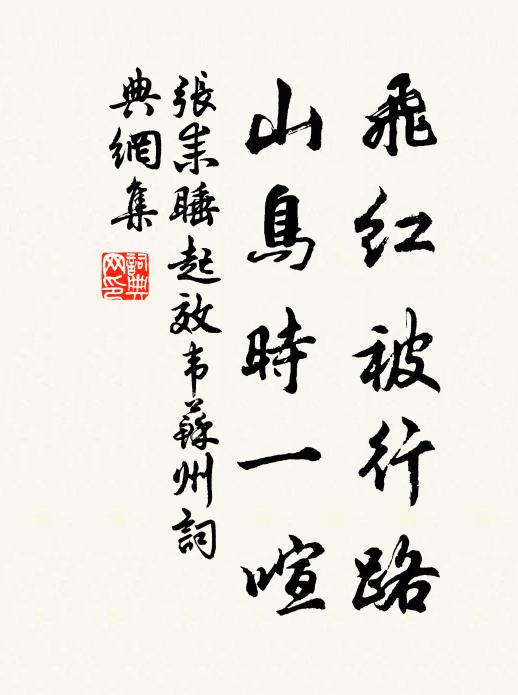 飛紅被行路
山鳥時一喧
張耒睡起效韦蘇州詞
典網集
詞典
网印